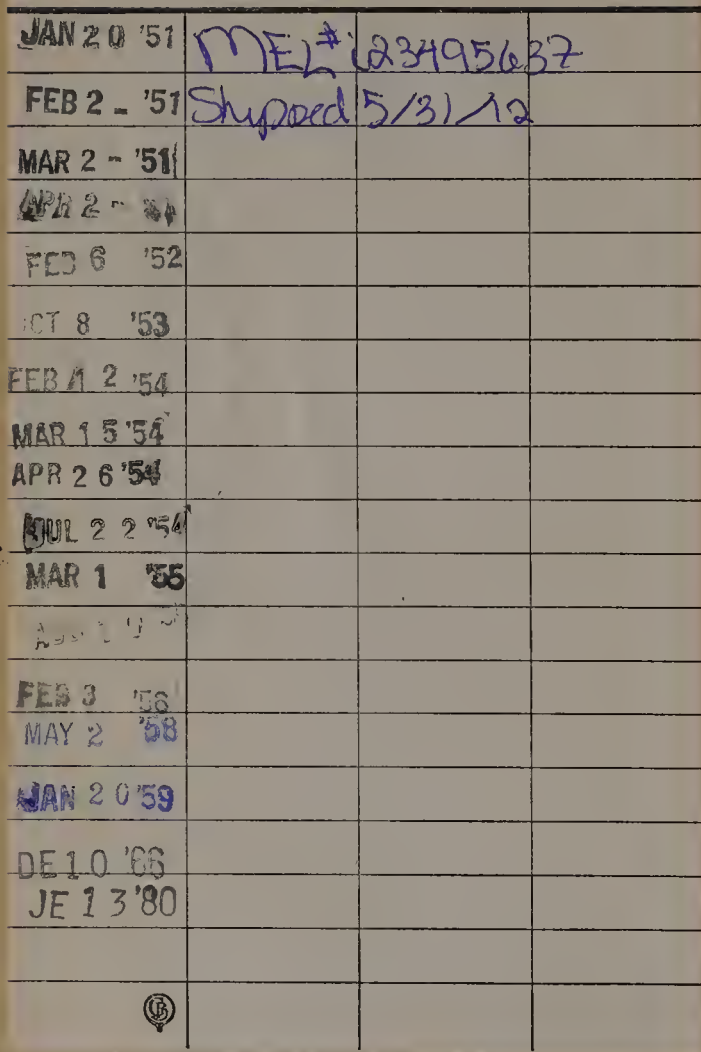 JAN 20 '51
MEL#
FEB 2 - '51
Shipped 5/31/12
MAR 2 - '51
APR 2 -
FEB 6 '52
OCT 8 '53
FEB 12 '54
MAR 15 '54
APR 26 '54
JUL 22 '54
MAR 1 '55
FEB 3 '56
MAY 2 '58
JAN 20 '59
DE 10 '66
JE 13 '80